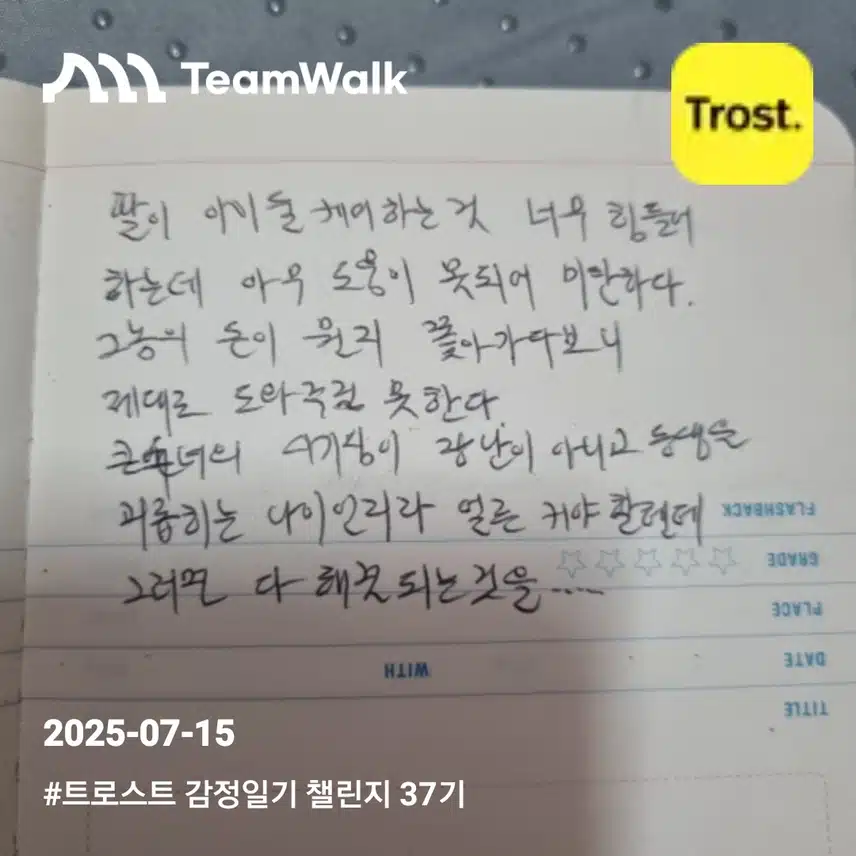 TeamWalk
Trost.
딸이 아이둘 케어하는것 너무 힘들어
하는데 아무 도움이 못되어 미안하다.
그놈의 돈이 뭔지 쫓아가다보니
제대로 도와주질 못한다
큰손녀의 시기심이 장난이 아니고 동생을
괴롭히는 나이인지라 얼른 커야 할텐데
그러면 다 해결되는것을.....
FLASHBACK
GRADE
PLACE
DATE
WITH
TITLE
2025-07-15
#트로스트 감정일기 챌린지 37기